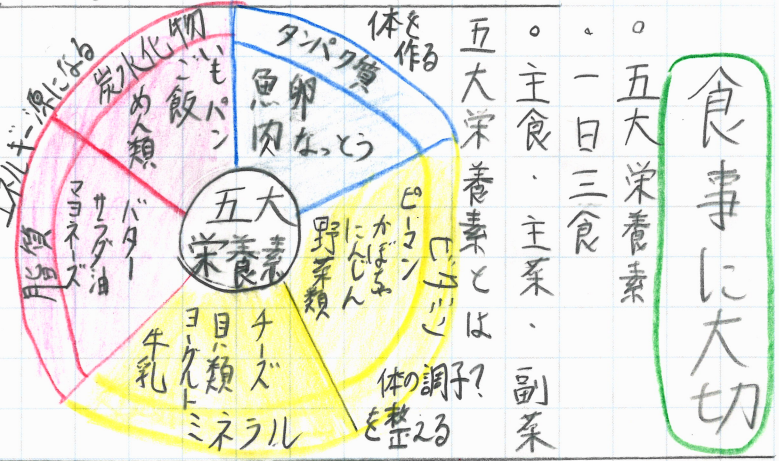 食事に大切
○五大栄養素
・一日三食
○主食・主菜・副菜
五大栄養素とは?
体を
作る
タンパク質
魚 卵
肉 なっとう
ビタミン
ピーマン
かぼちゃ
にんじん
野菜類
体の調子
を整える
ミネラル
チーズ
貝類
ヨーグルト
牛乳
脂質
バター
サラダ油
マヨネーズ
エネルギー源になる
炭水化物
いも
パン
ご飯
めん類
五大
栄養素